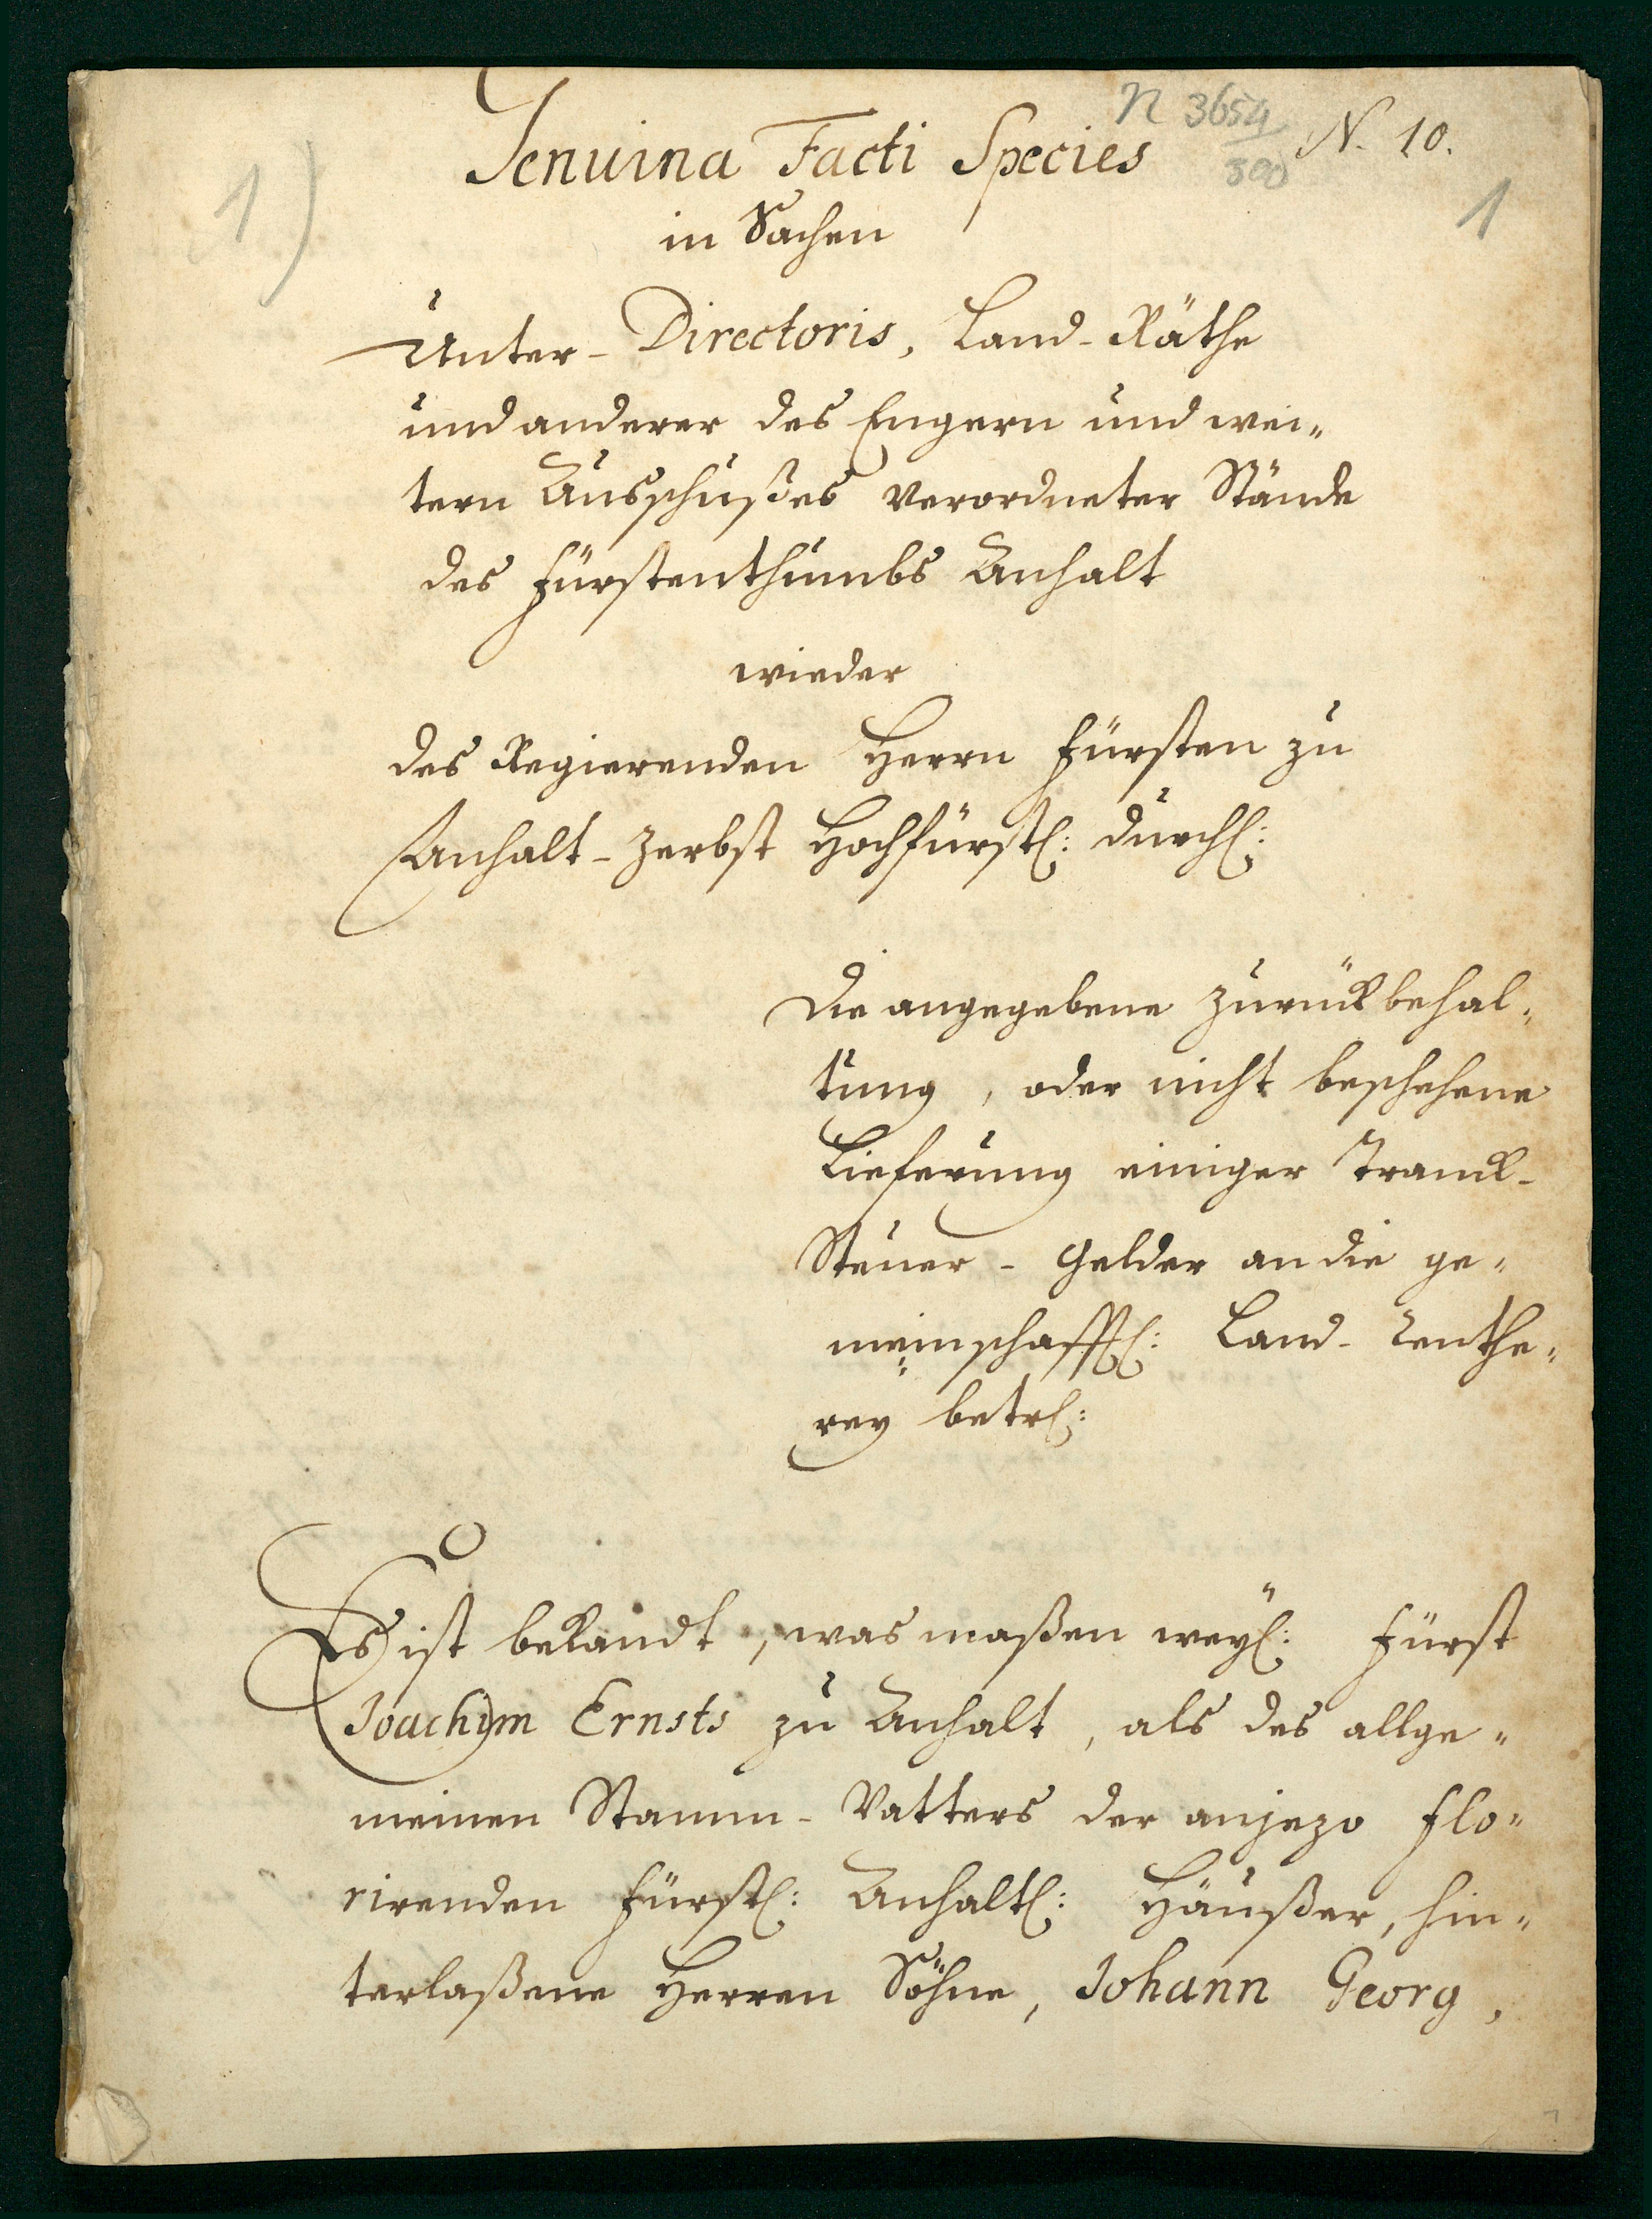 N 3654
500
N. 10.
1)
1
Genuina Facti Species
in Sachen
Unter-Directoris, Land-Räthe
und anderer des Engern und wei„
tern Ausschußes verordneter Stände
des Fürstenthumbs Anhalt
wieder
des Regierenden Herrn Fürsten zu
Anhalt-Zerbst Hochfürstl: Durchl:
Die angegebene Zurückbehal„
tung, oder nicht beschehene
Lieferung einiger Tranck-
Steuer-Gelder an die ge„
meinschafftl: Land-Renthe„
rey betrl:
Es ist bekandt, was maßen weyl: Fürst
Joachym Ernsts zu Anhalt, als des allge„
meinen Stamm-Vatters der anjezo flo„
rirenden Fürstl: Anhaltl: Häußer, hin„
terlaßene Herren Söhne, Johann Georg,